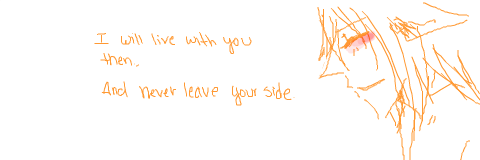 I will live with you
then.
And never leave your side